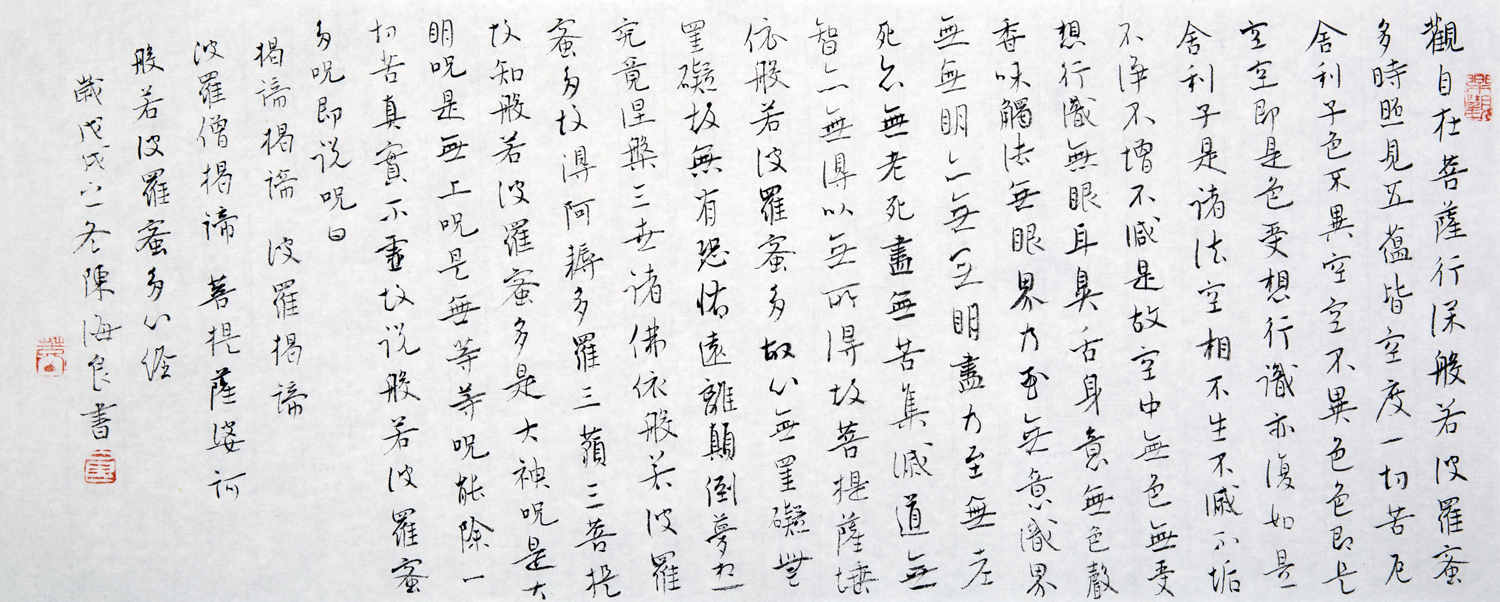 觀自在菩薩行深般若波羅蜜
多時照見五蘊皆空度一切苦厄
舍利子色不異空空不異色色即是
空空即是色受想行識亦復如是
舍利子是諸法空相不生不滅不垢
不淨不增不減是故空中無色無受
想行識無眼耳鼻舌身意無色聲
香味觸法無眼界乃至無意識界
無無明亦無無明盡乃至無老
死亦無老死盡無苦集滅道無
智亦無得以無所得故菩提薩埵
依般若波羅蜜多故心無罣礙無
罣礙故無有恐怖遠離顛倒夢想
究竟涅槃三世諸佛依般若波羅
蜜多故得阿耨多羅三藐三菩提
故知般若波羅蜜多是大神呪是大
明呪是無上呪是無等等呪能除一
切苦真實不虛故说般若波羅蜜
多呪即说呪曰
揭諦揭諦 波羅揭諦
波羅僧揭諦 菩提薩婆訶
般若波羅蜜多心經
歲戊戌之冬陳海良書